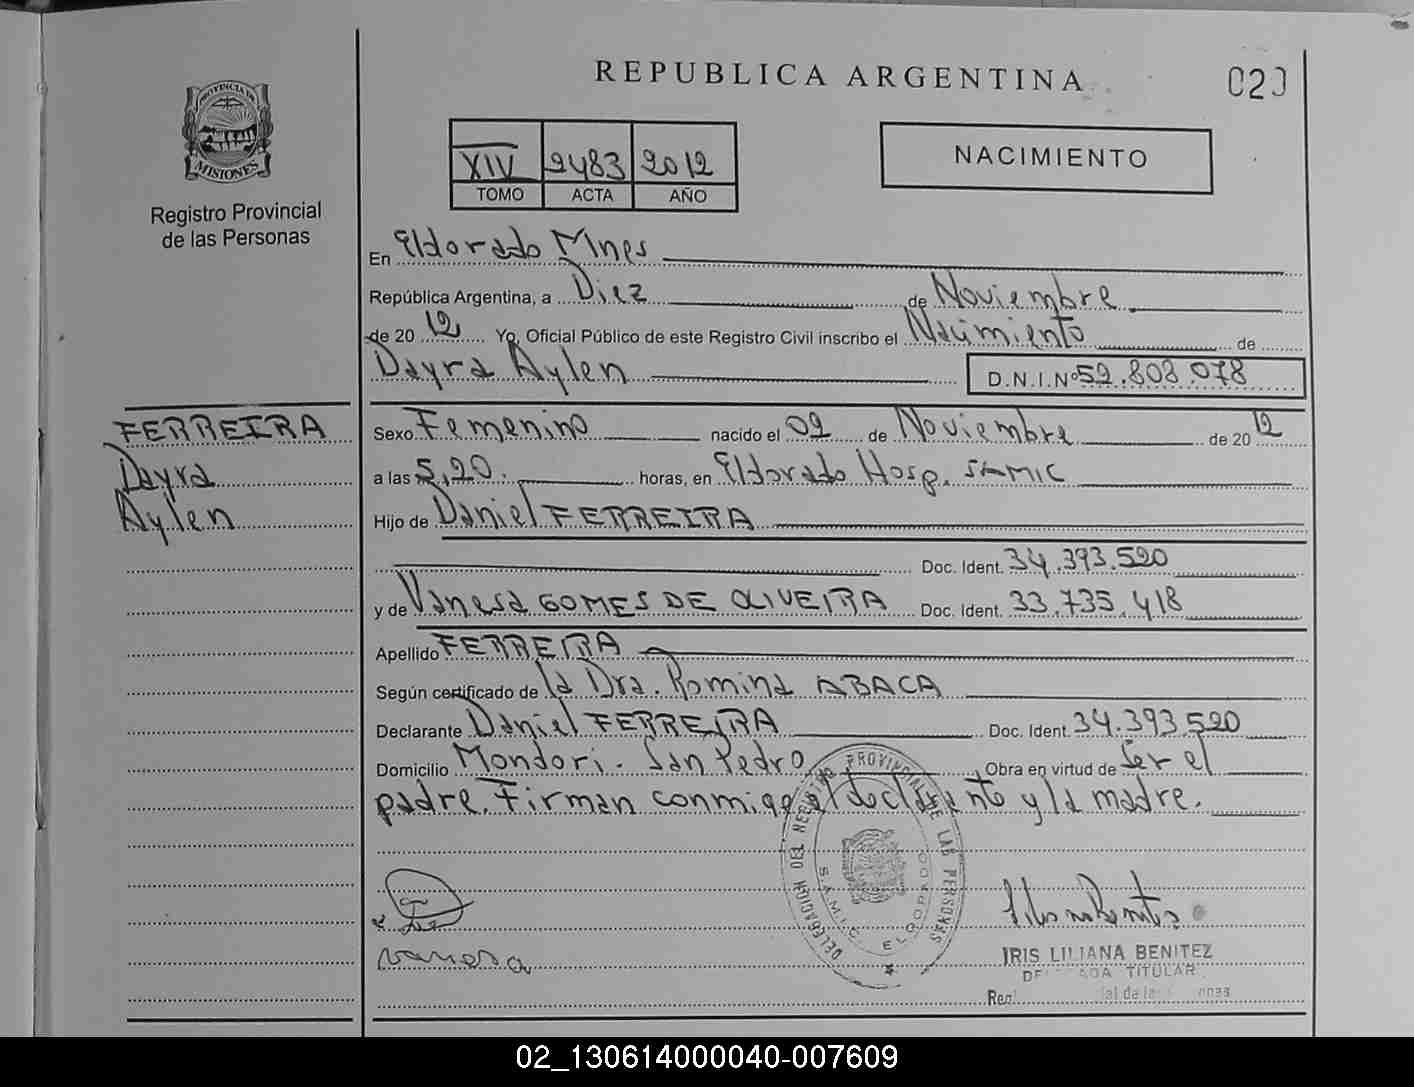 REPUBLICA ARGENTINA
020
PROVINCIA DE
MISIONES
Registro Provincial
de las Personas
XIV 2483 2012
TOMO ACTA AÑO
NACIMIENTO
En Eldorado Mnes
República Argentina, a Diez de Noviembre
de 20 12 Yo, Oficial Público de este Registro Civil inscribo el Nacimiento de
Dayra Aylen
D.N.I.Nº 52.808.078
FERREIRA
Dayra
Aylen
Sexo Femenino nacido el 02 de Noviembre de 20 12
a las 5,20. horas, en Eldorado Hosp. SAMIC
Hijo de Daniel FERREIRA
Doc. Ident. 34.393.520
y de Vanesa GOMES DE OLIVEIRA Doc. Ident. 33.735.418
Apellido FERREIRA
Según certificado de la Dra. Romina ABACA
Declarante Daniel FERREIRA Doc. Ident. 34.393.520
Domicilio Mondori - San Pedro Obra en virtud de Ser el
padre. Firman conmigo el declarante y la madre.
DELEGACION DEL REGISTRO PROVINCIAL DE LAS PERSONAS
S.A.M.I.C. ELDORADO
vanesa
IRIS LILIANA BENITEZ
DELEGADA TITULAR
02_130614000040-007609